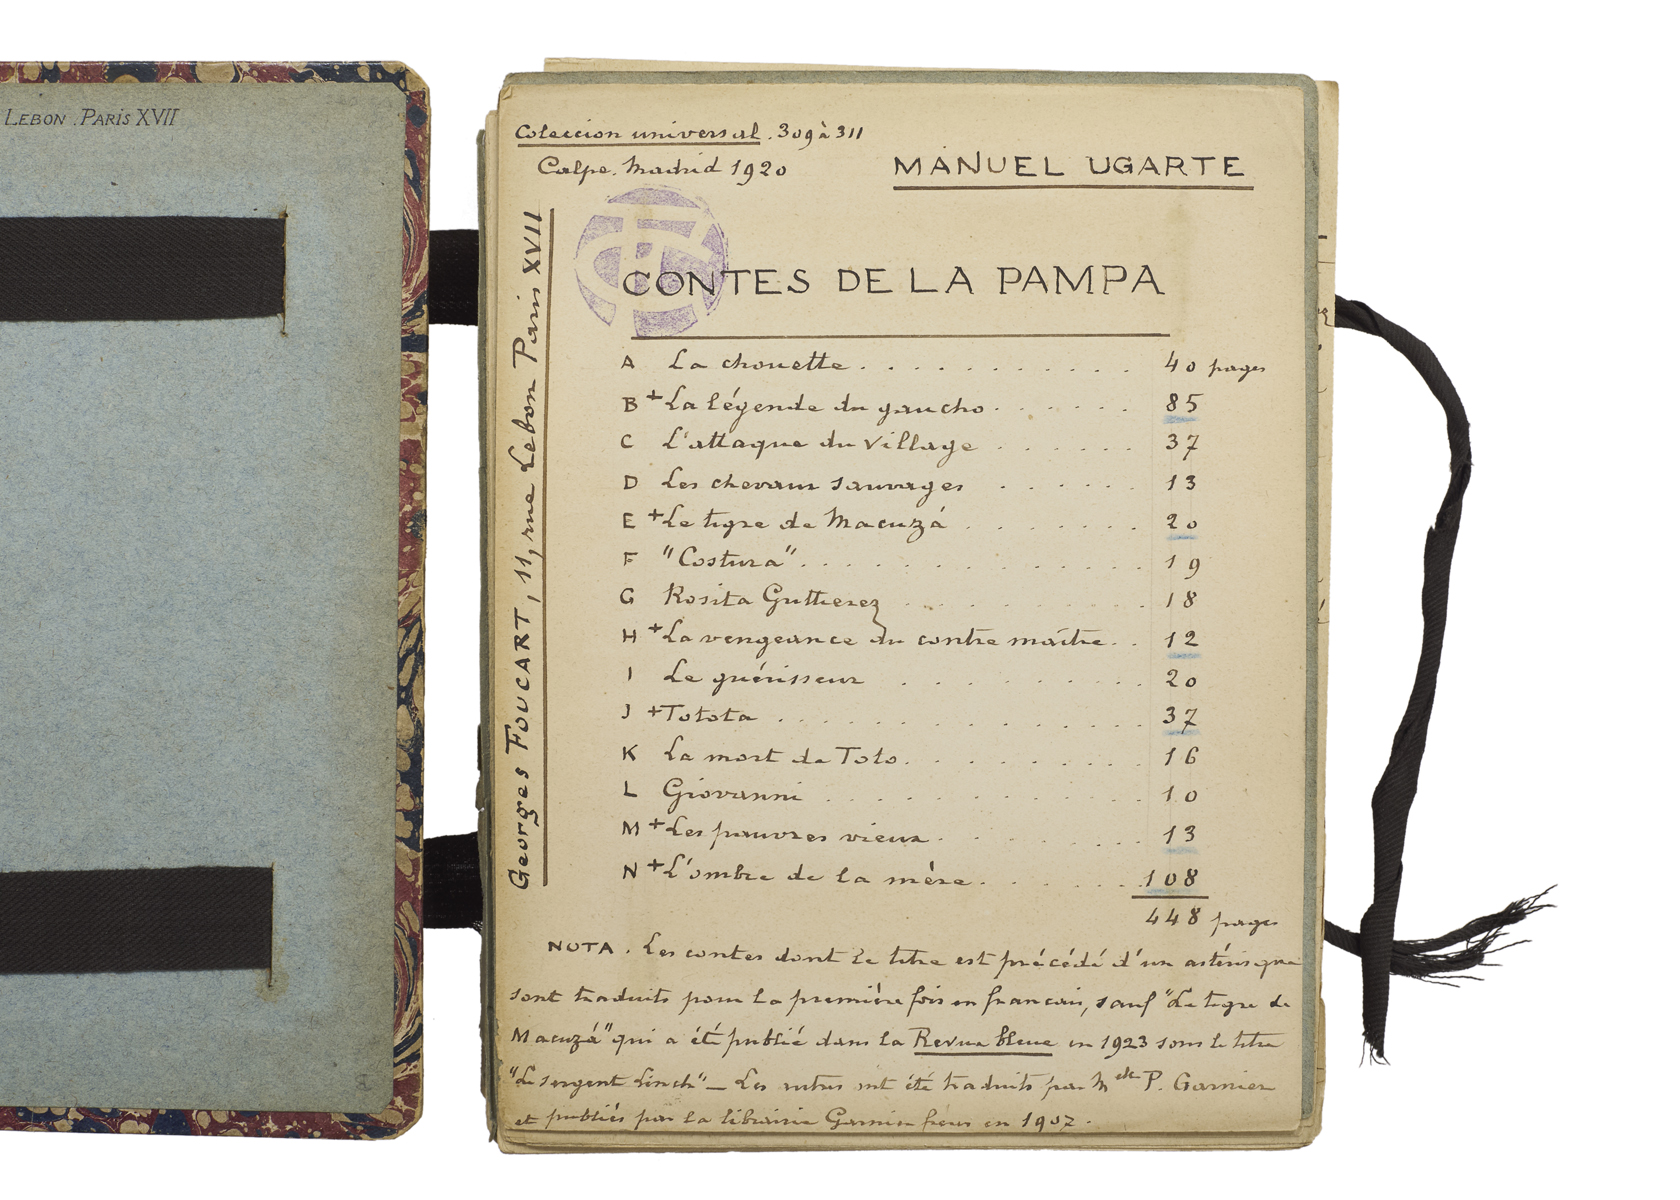 LEBON . PARIS XVII
Coleccion universal . 309 à 311
Calpe. Madrid 1920
MANUEL UGARTE
Georges FOUCART, 11, rue Lebon Paris XVII
CONTES DE LA PAMPA
A La chouette . . . . . . . . . . . 40 pages
B + La légende du gaucho . . . . . . 85
C L'attaque du village . . . . . . 37
D Les chevaux sauvages . . . . . . 13
E + Le tigre de Macuzá . . . . . . . 20
F "Costura" . . . . . . . . . . . . . . 19
G Rosita Guttierez . . . . . . . . . . 18
H + La vengeance du contre maître . . 12
I Le guérisseur . . . . . . . . . . 20
J + Totota . . . . . . . . . . . . . . . 37
K La mort de Toto . . . . . . . . . 16
L Giovanni . . . . . . . . . . . . 10
M + Les pauvres vieux . . . . . . . . 13
N + L'ombre de la mère . . . . . . . 108
448 pages
NOTA . Les contes dont le titre est précédé d'un astérisque
sont traduits pour la première fois en francais, sauf "Le tigre de
Macuzá" qui a été publié dans la Revue bleue en 1923 sous le titre
"Le sergent Linch" _ Les autres ont été traduits par Melle P. Garnier
et publiés par la librairie Garnier frères en 1907 .